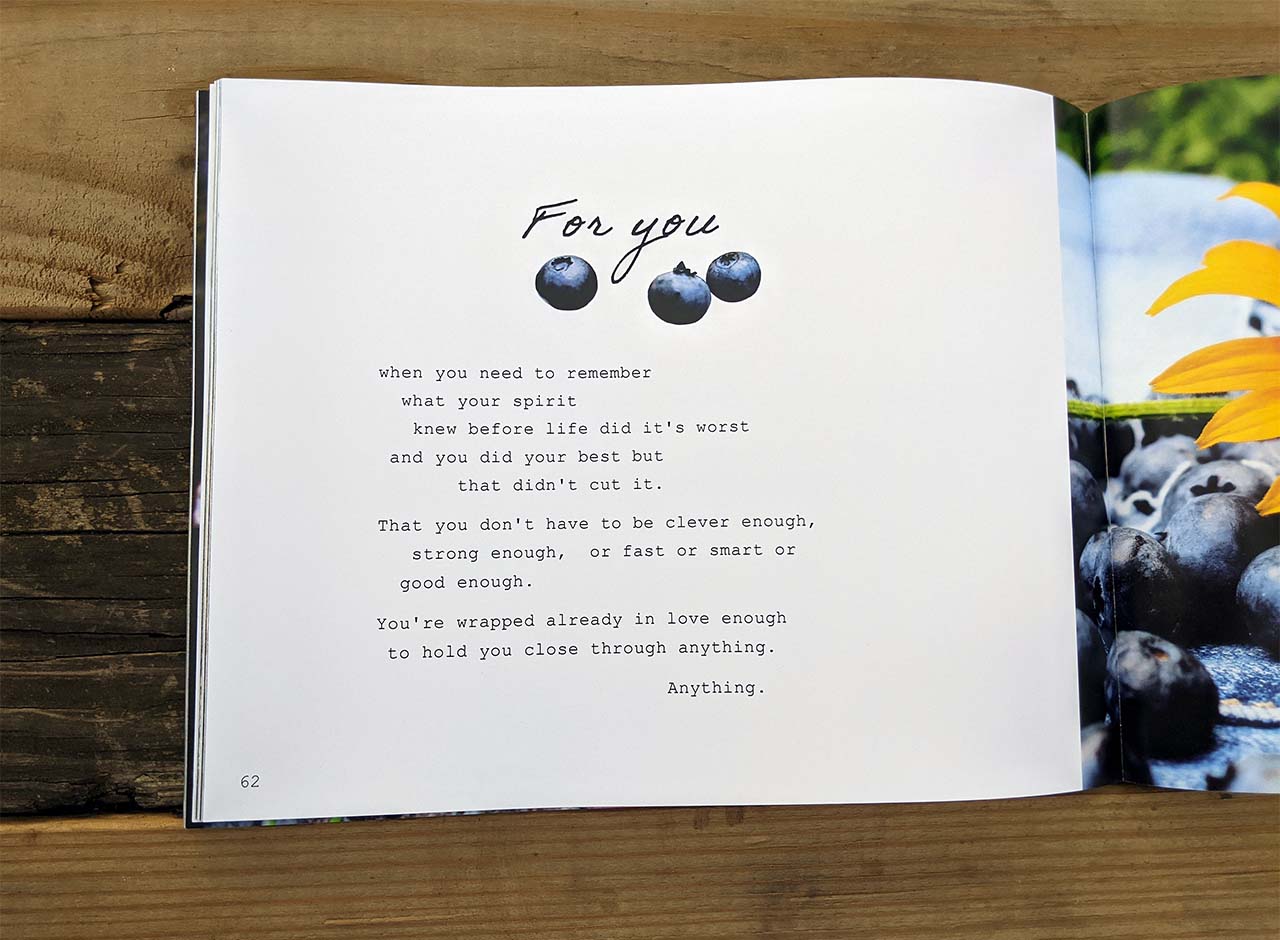 For you
when you need to remember
what your spirit
knew before life did it's worst
and you did your best but
that didn't cut it.
That you don't have to be clever enough,
strong enough, or fast or smart or
good enough.
You're wrapped already in love enough
to hold you close through anything.
Anything.
62